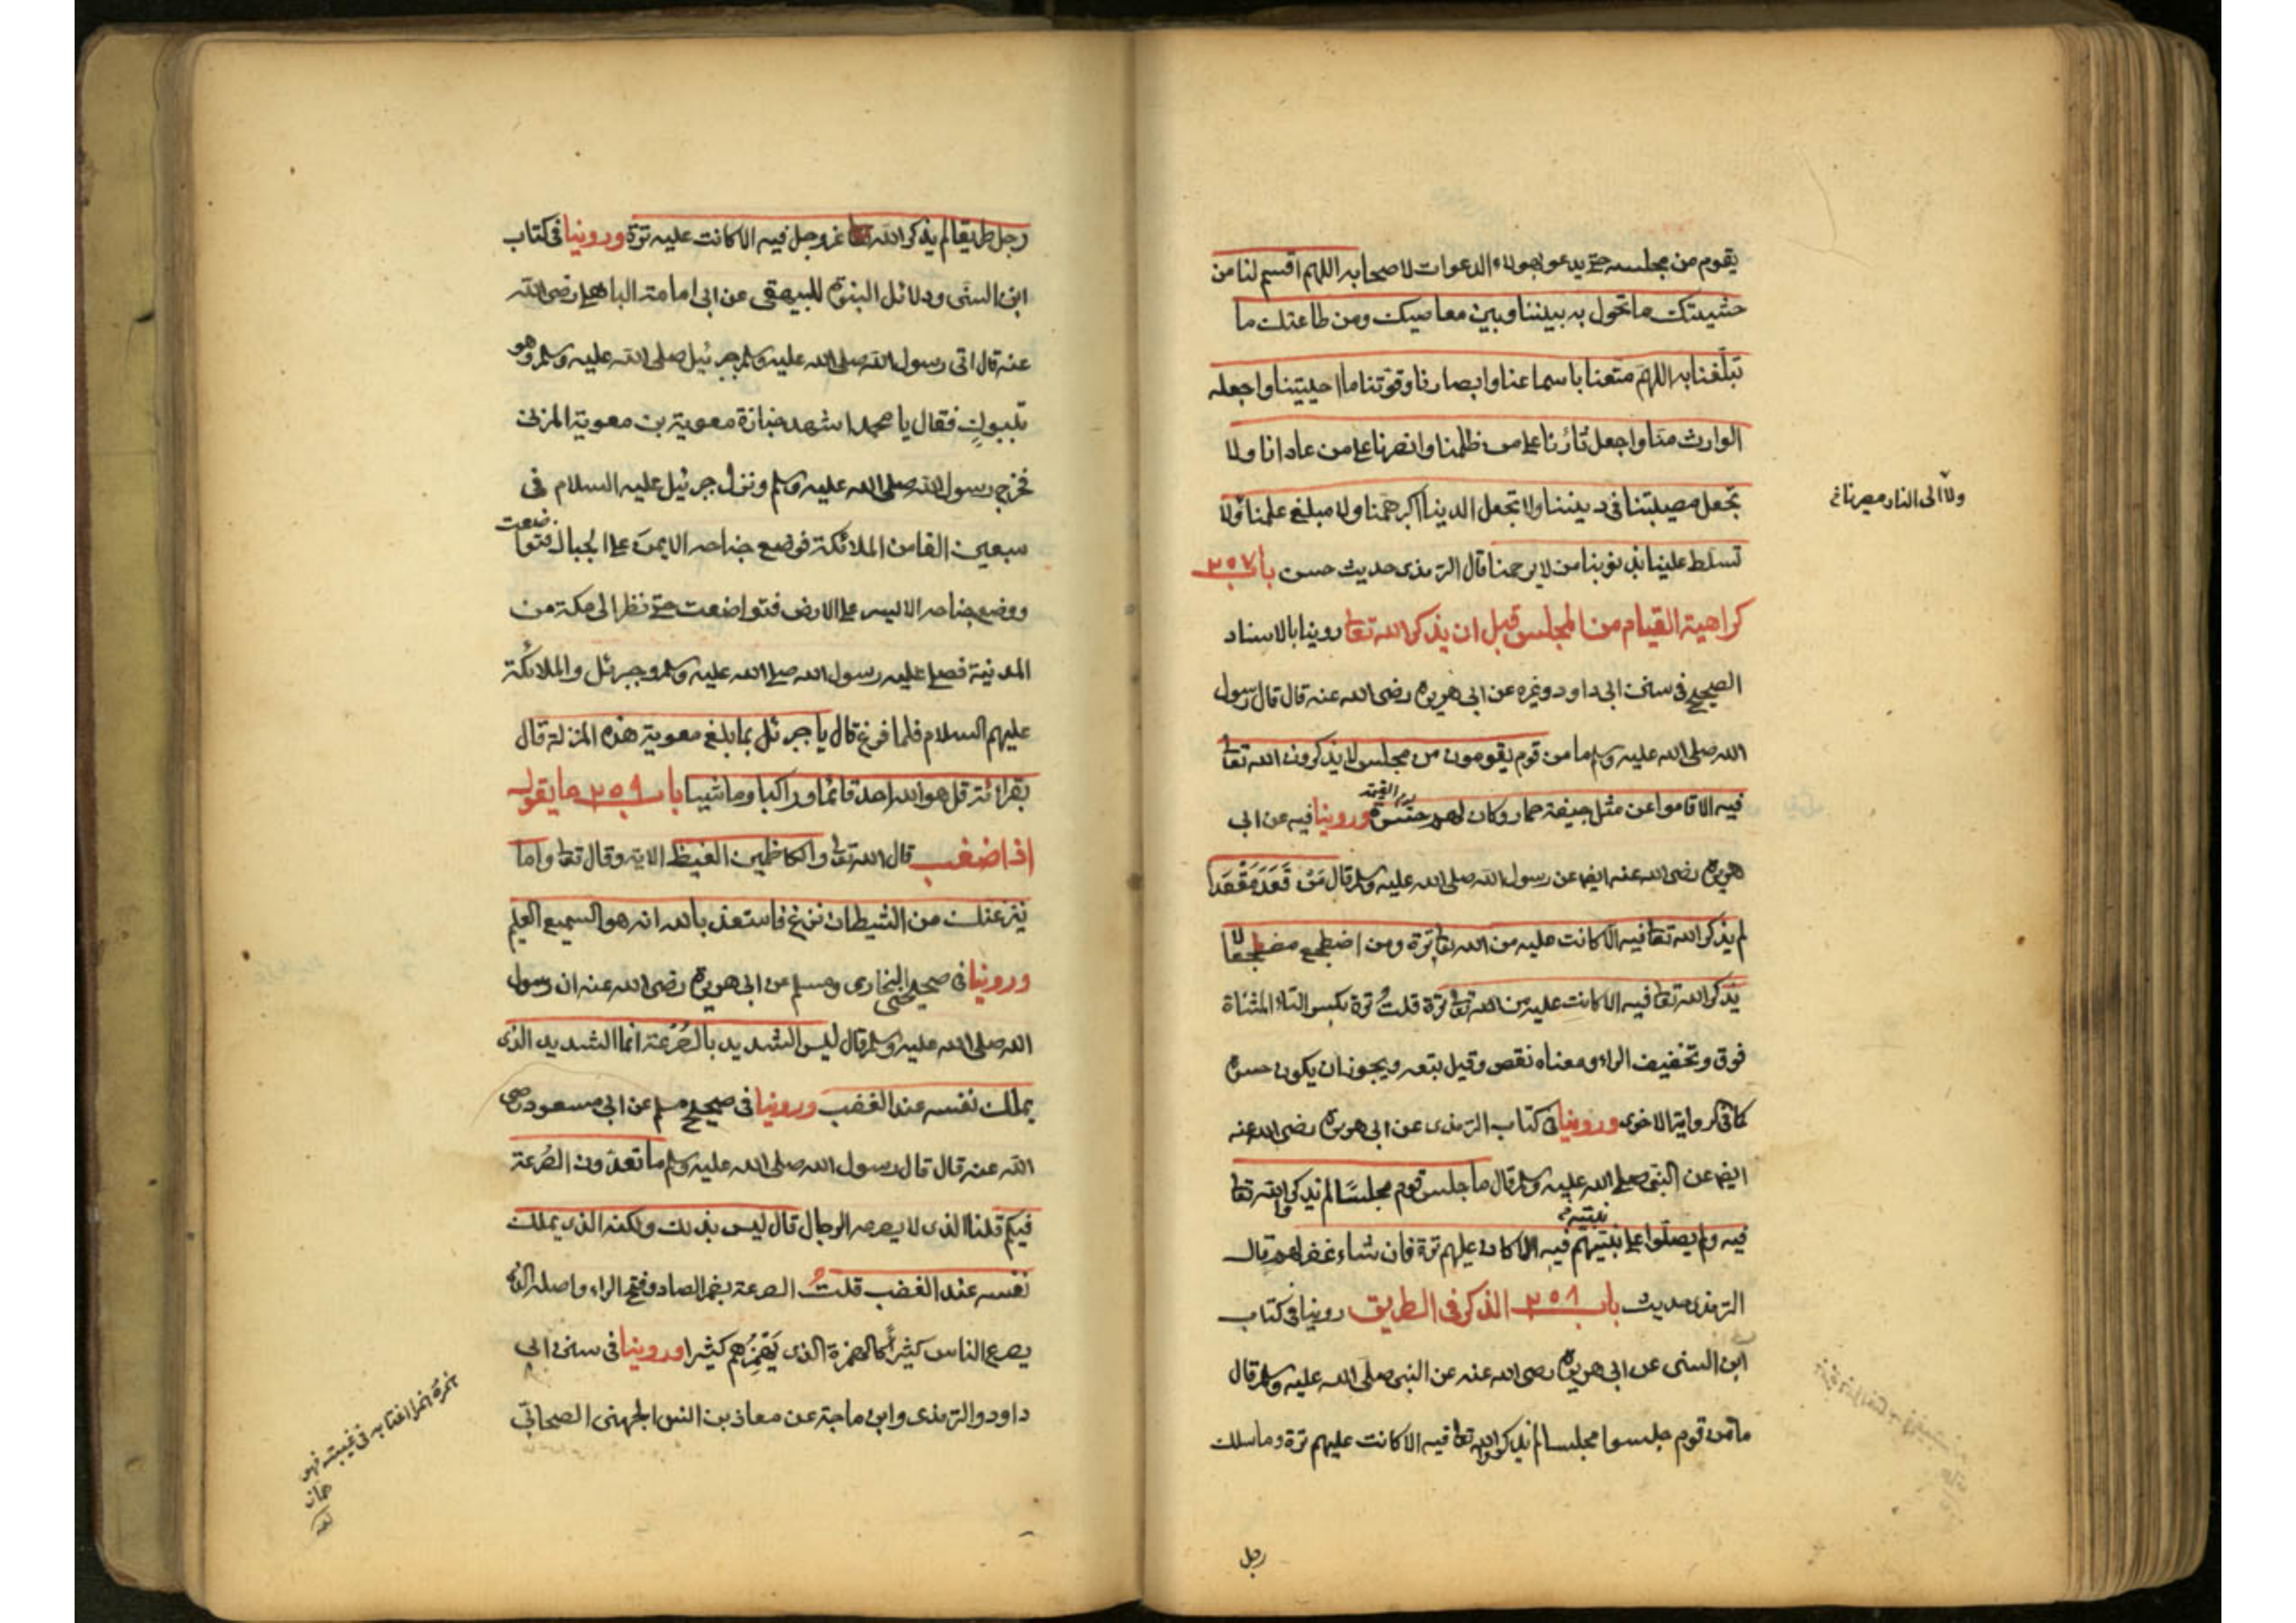 يقوم من مجلسه حتى يدعو بهولاء الدعوات لاصحابه اللهم اقسم لنا من
خشيتك ما تحول به بيننا وبين معاصيك ومن طاعتك ما
تبلغنا به اللهم متعنا باسماعنا وابصارنا وقوتنا ما احييتنا واجعله
الوارث منا واجعل ثأرنا على من ظلمنا وانصرنا على من عادانا ولا
تجعل مصيبتنا في ديننا ولا تجعل الدنيا اكبر همنا ولا مبلغ علمنا ولا
ولا الى النار مصيرنا
تسلط علينا بذنوبنا من لا يرحمنا قال الترمذي حديث حسن باب ٢٥٧
كراهية القيام من المجلس قبل ان يذكر الله تعالى روينا بالاسناد
الصحيح في سنن ابي داود وغيره عن ابي هريرة رضي الله عنه قال قال رسول
الله صلى الله عليه وسلم ما من قوم يقومون من مجلس لا يذكرون الله تعالى
فيه الا قاموا عن مثل جيفة حمار وكان لهم حسرة يوم القيمة وروينا فيه عن ابي
هريرة رضي الله عنه ايضا عن رسول الله صلى الله عليه وسلم قال مَنْ قَعَدَ مَقْعَدًا
لم يذكر الله تعالى فيه الا كانت عليه من الله تعالى ترة ومن اضطجع مضطجعا لا
يذكر الله تعالى فيه الا كانت عليه من الله تعالى ترة قلتُ ترة بكسر التاء المثناة
فوق وتخفيف الراء ومعناه نقص وقيل تبعه ويجوز ان يكون حسرة
كما في الرواية الاخرى وروينا في كتاب الترمذي عن ابي هريرة رضي الله عنه
ايضا عن النبي صلى الله عليه وسلم قال ما جلس قوم مجلسًا لم يذكروا الله تعالى
فيه ولم يصلوا على نبيهم فيه الا كان عليهم ترة فان شاء غفر لهم قال
الترمذي حديث باب ٢٥٨ الذكر في الطريق روينا في كتاب
ابن السني عن ابي هريرة رضي الله عنه عن النبي صلى الله عليه وسلم قال
ما من قوم جلسوا مجلسا لم يذكروا الله تعالى فيه الا كانت عليهم ترة وما سلك
رجل
رجل طريقا لم يذكر الله عز وجل فيه الا كانت عليه ترة وروينا في كتاب
ابن السني ودلائل النبوة للبيهقي عن ابي امامة الباهلي رضي الله
عنه قال اتى رسول الله صلى الله عليه وسلم جبرئيل صلى الله عليه وسلم وهو
بتبوكٍ فقال يا محمد اشهد جنازة معوية بن معوية المزني
فخرج رسول الله صلى الله عليه وسلم ونزل جبرئيل عليه السلام في
سبعين الفا من الملائكة فوضع جناحه الايمن على الجبال فتواضعت
ووضع جناحه الايسر على الارض فتواضعت حتى نظر الى مكة من
المدنية فصلى عليه رسول الله صلى الله عليه وسلم وجبرئل والملائكة
عليهم السلام فلما فرغ قال يا جبرئل بما بلغ معوية هذه المنزلة قال
بقرائة قل هو الله احد قائما وراكبا وماشيا باب ٢٥٩ ما يقول
اذا ضغب قال الله تعالى والكاظمين الغيظ الاية وقال تعالى واما
ينزغنك من الشيطان نزغ فاستعذ بالله انه هو السميع العليم
وروينا في صحيحي البخاري ومسلم عن ابي هريرة رضي الله عنه ان رسول
الله صلى الله عليه وسلم قال ليس الشديد بالصُرَعة انما الشديد الذي
يملك نفسه عند الغضب وروينا في صحيح مسلم عن ابي مسعود رضي
الله عنه قال قال رسول الله صلى الله عليه وسلم ما تعدّون الصُرعة
فيكم قلنا الذي لا يصرعه الرجال قال ليس بذلك ولكنه الذي يملك
نفسه عند الغضب قلتُ الصرعة بضم الصاد وفتح الراء واصله الذي
يصرع الناس كثيرًا كالهمزة الذي يَهْمِزُهم كثيرا وروينا في سنن ابي
داود والترمذي وابن ماجة عن معاذ بن انس الجهني الصحابي